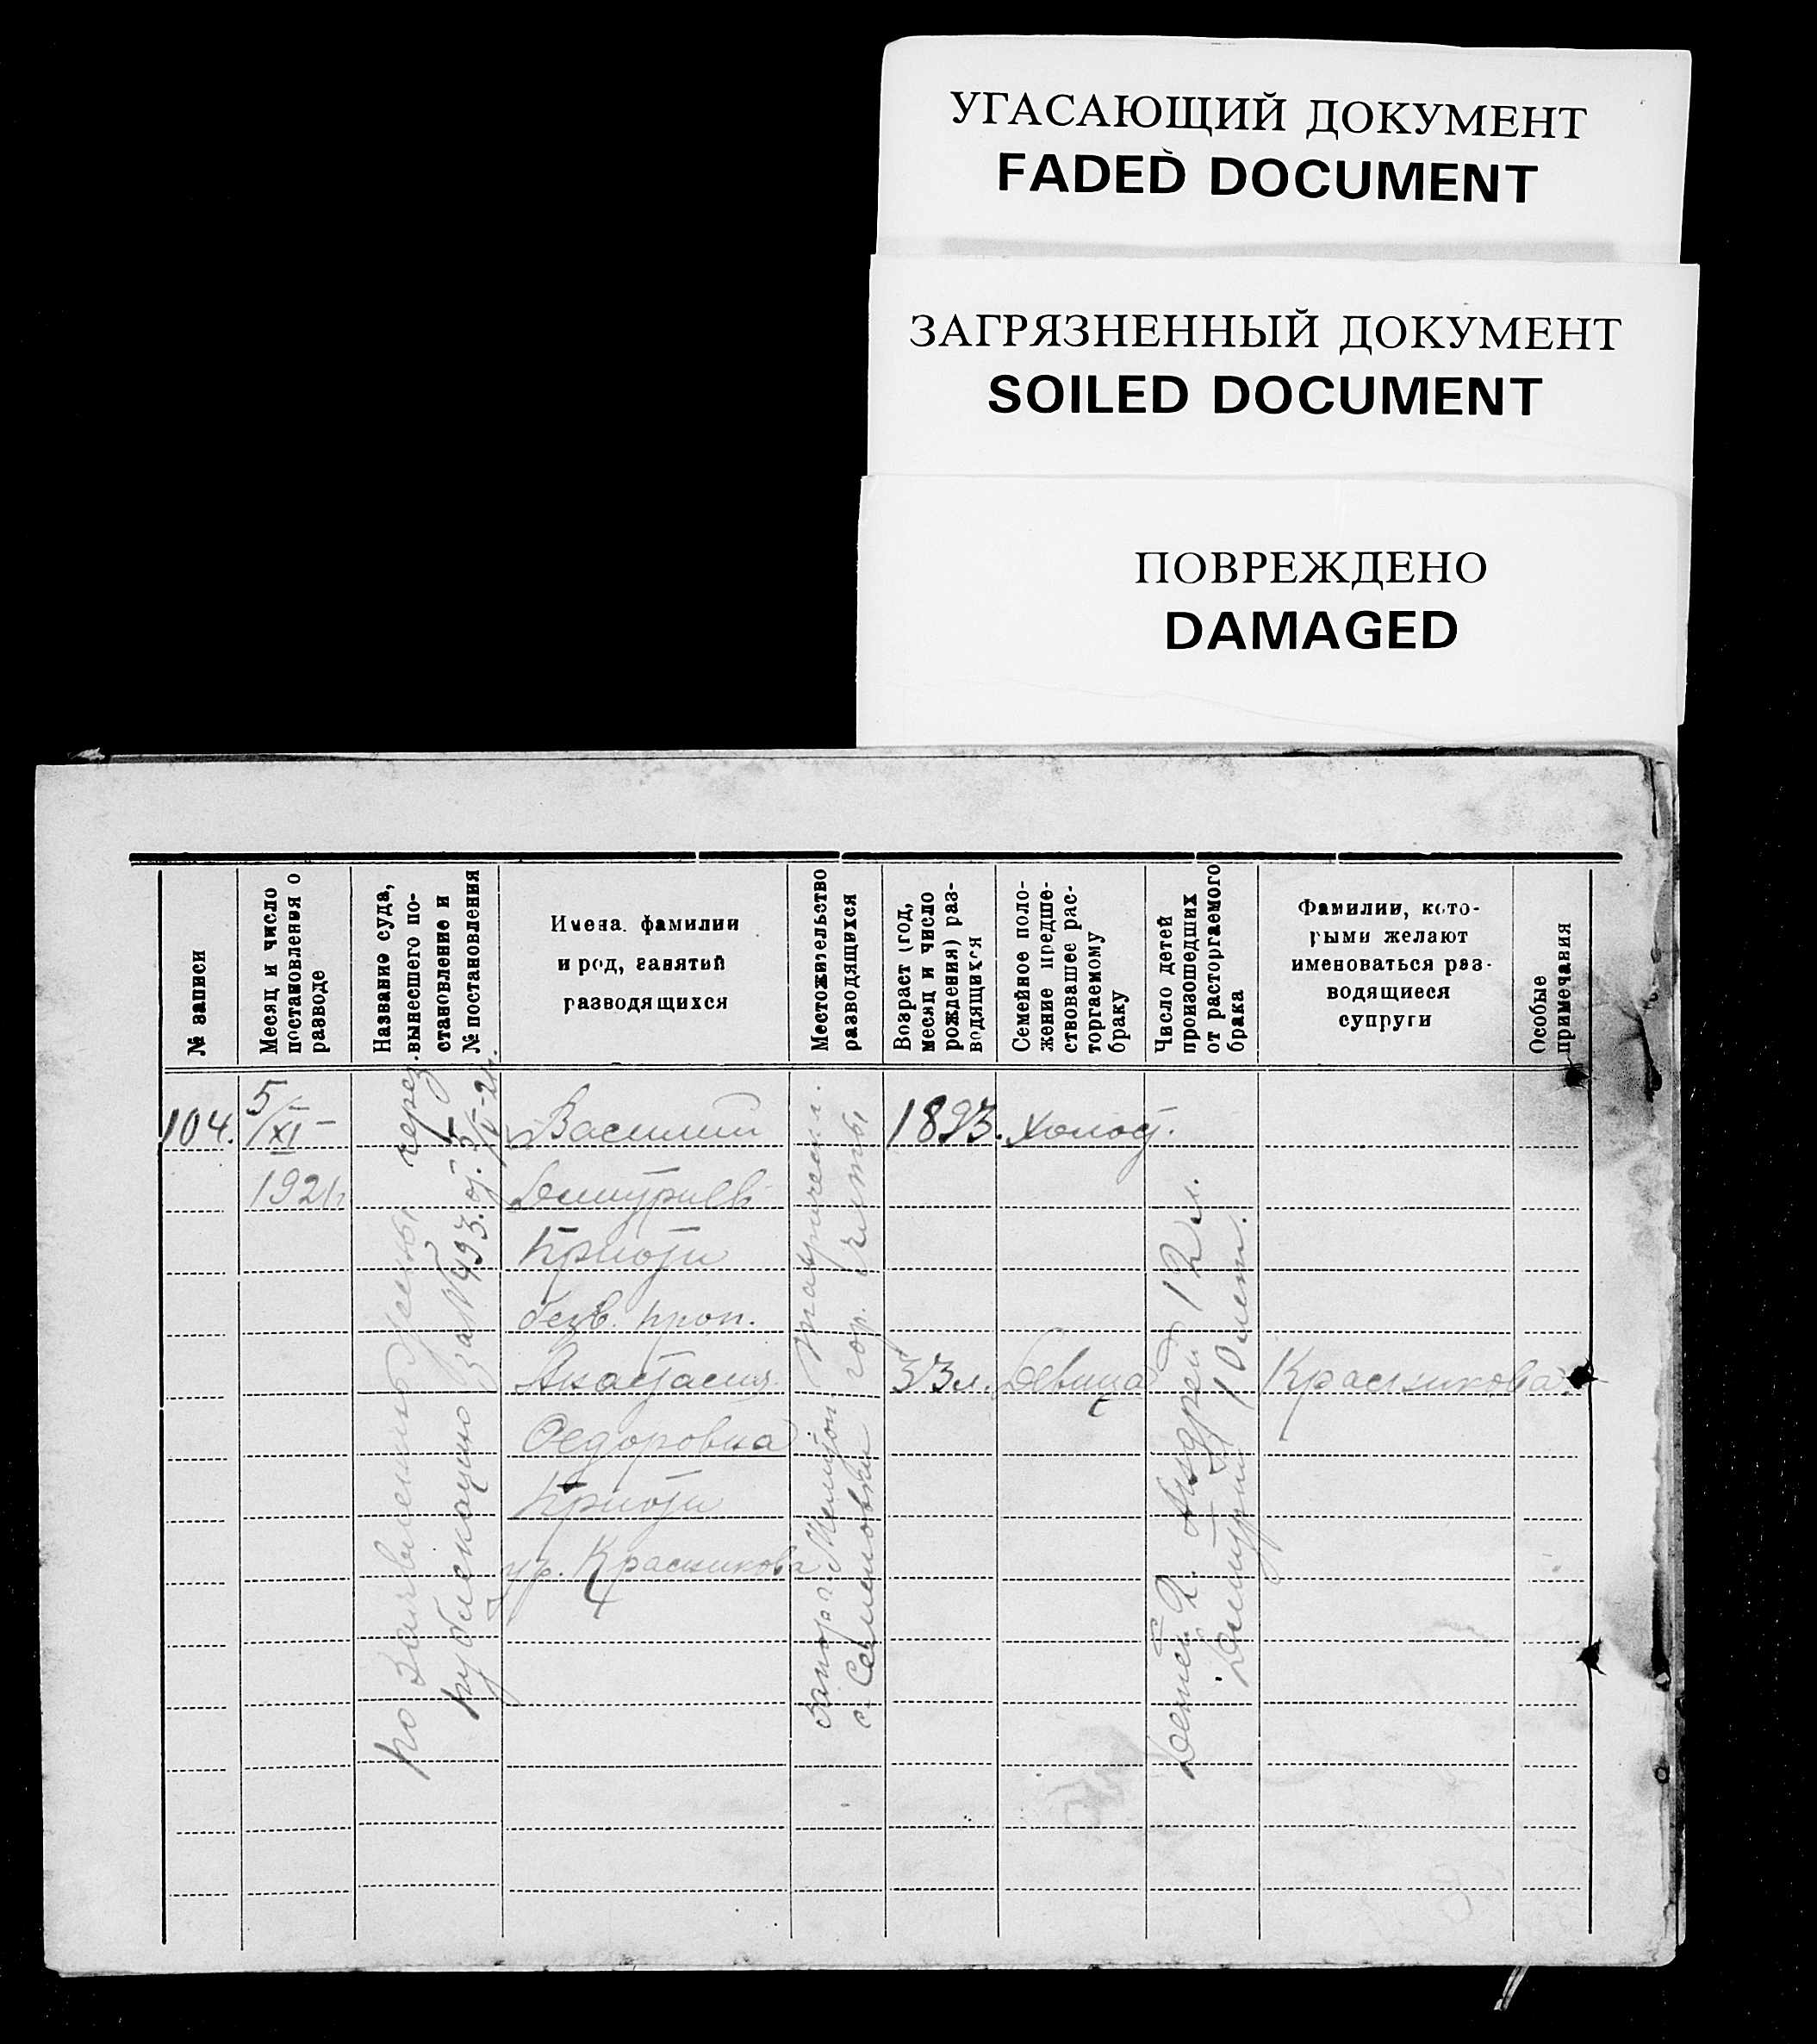 УГАСАЮЩИЙ ДОКУМЕНТ
FADED DOCUMENT
ЗАГРЯЗНЕННЫЙ ДОКУМЕНТ
SOILED DOCUMENT
ПОВРЕЖДЕНО
DAMAGED
№ записи
Месяц и число
постановления о
разводе
Название суда,
вынесшего по-
становление и
№ постановления
Имена, фамилии
и род, занятий
разводящихся
Местожительство
разводящихся
Возраст (год,
месяц и число
рождения) раз-
водящихся
Семейное поло-
жение предше-
ствовавшее рас-
торгаемому
браку
Число детей
произошедших
от расторгаемого
брака
Фамилии, кото-
рыми желают
именоваться раз-
водящиеся
супруги
Особые
примечания
104.
5/XI-
1921г
По заявлению жены через
публикацию за №493. от 5/VI-21г.
Василий
Дмитриев
безв. проп.
Анастасия
Федоровна
ур. Красникова
с. Семеновки гор.
1893.
33 л.
холост.
Девица
Детей 2. Андрей 12 л.
Дмитрий 10 лет.
Красникова.